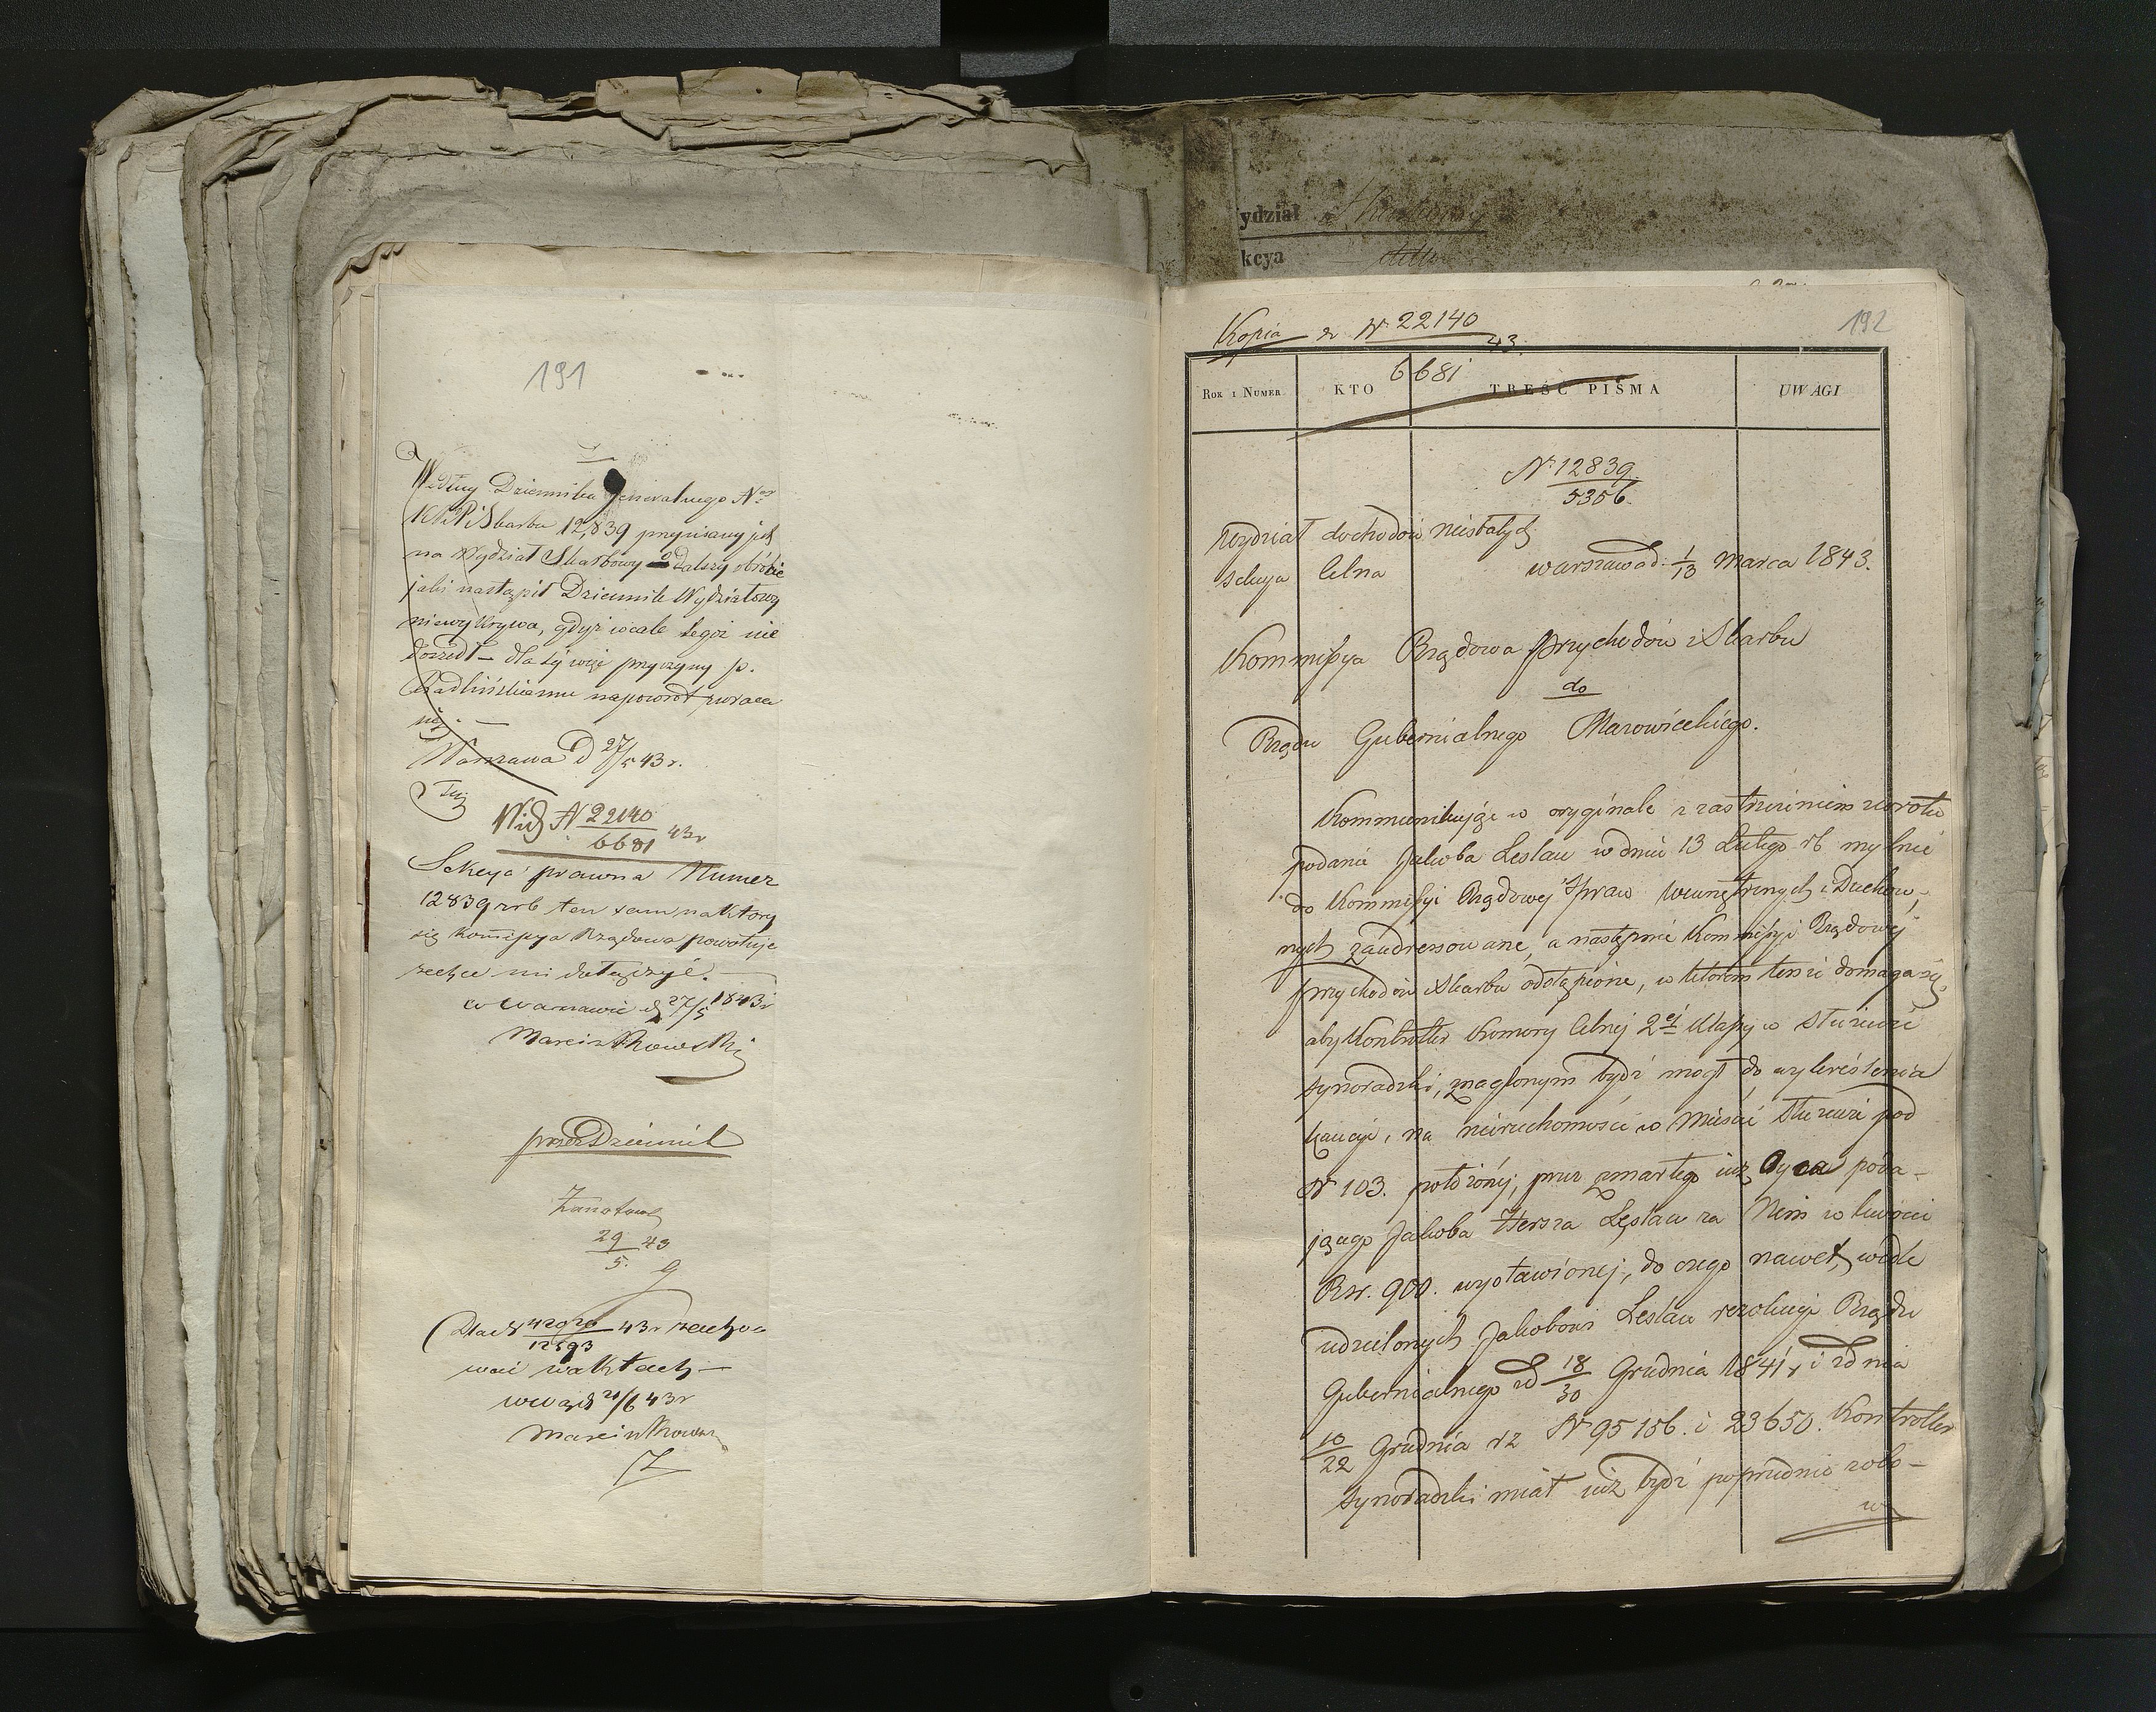 191
Według Dziennika Generalnego Nr
KRPiSkarbu 12,839 przypisany jest
na Wydział Skarbowy Dalszy obrót
jaki nastąpił Dziennik Wydziałowy
niewykrywa, gdyż wcale tegoż nie
doszedł – dla tej więc przyczyny p.
Radlińskiemu napowrót zwraca
się. —
Warszawa D 27/5 43 r.
Wid N 22140/6681 43 r
Sekcya prawna Numer
12839 rb ten sam na który
się Kommissya Rządowa powołuje
zechce mi dołączyć. —
w Warszawie d 27/5 1843 r
Marcinkowski
przez Dziennik
Zanotow
29/5. 43
43 r zacho
wać w aktach —
43 r
Marcinkows
ydział
kcya
192
Kopia do N 22140
43.
6681
Rok i Numer
KTO
TREŚĆ PISMA
UWAGI
N. 12839
5356.
Wydział dochodów niestałych
Sekcya Celna
Warszawa d. 1/13 Marca 1843.
Kommissya Rządowa Przychodów i Skarbu
do
Rządu Gubernialnego Mazowieckiego.
Kommunikując w oryginale z zastrzeżeniem zwrotu
podanie Jakóba Leslau w dniu 13 Lutego rb mylnie
do Kommissyi Rządowej Spraw Wewnętrznych i Duchow-
nych zaadressowane, a następnie Kommissyi Rządowej
Przychodów i Skarbu odstąpione, w którem tenże domaga się
aby Kontroller Komory Celnej 2ej Klassy w Służewie
Synoradzki, znaglonym bydź mógł do wykreślenia
kaucyi, na nieruchomości w Mieście Służewie pod
N 103. położonej, przez zmarłego już Oyca poda-
jącego Jakóba Hersza Leslau za Nim w kwocie
Rsr. 900. wystawionej, do czego nawet, wedle
udzielonych Jakóbowi Leslau rezolucyi Rządu
Gubernialnego z d 18/30 Grudnia 1841 r i z dnia
10/22 Grudnia rz N 95156. i 23650. Kontroller
Synoradzki miał już bydź poprzednio zobo-
w